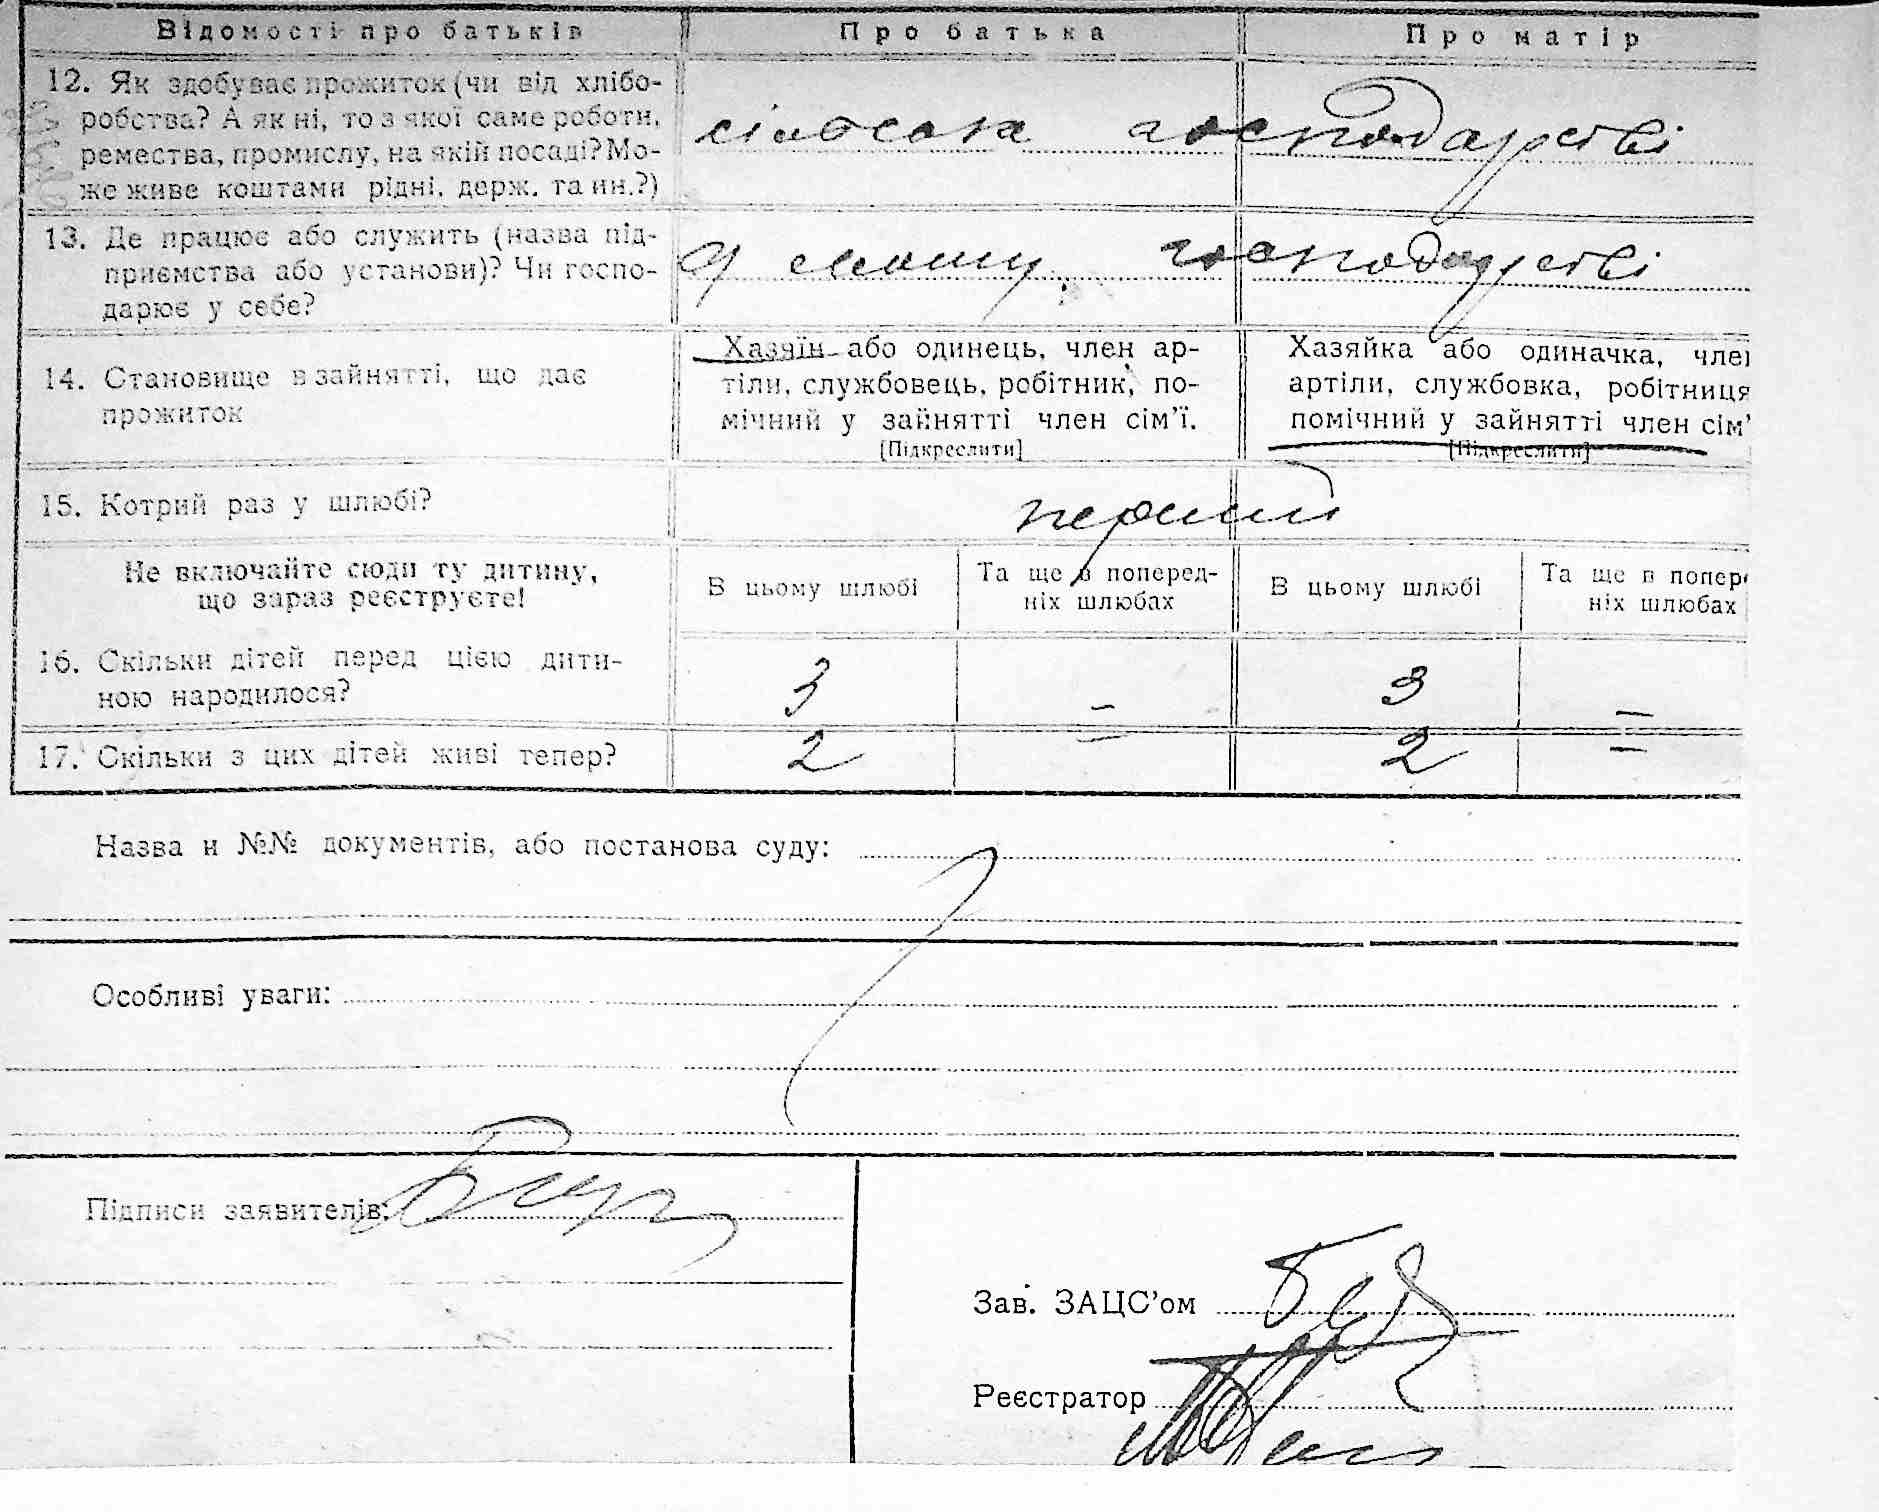 Відомості про батьків
Про батька
Про матір
12. Як здобуває прожиток (чи від хлібо-
робства? А як ні, то з якої саме роботи,
ремества, промислу, на якій посаді? Мо-
же живе коштами рідні, держ. та ин.?)
господарстві
13. Де працює або служить (назва під-
приємства або установи)? Чи госпо-
дарює у себе?
у своєму господарстві
14. Становище в зайнятті, що дає
прожиток
Хазяїн або одинець, член ар-
тіли, службовець, робітник, по-
мічний у зайнятті член сім’ї.
[Підкреслити]
Хазяйка або одиначка, член
артіли, службовка, робітниця
помічний у зайнятті член сім’
[Підкреслити]
15. Котрий раз у шлюбі?
перший
Не включайте сюди ту дитину,
що зараз реєструєте!
В цьому шлюбі
Та ще в поперед-
ніх шлюбах
В цьому шлюбі
Та ще в попер
ніх шлюбах
16. Скільки дітей перед цією дити-
ною народилося?
3
–
3
–
17. Скільки з цих дітей живі тепер?
2
–
2
–
Назва и №№ документів, або постанова суду:
Особливі уваги:
Підписи заявителів:
Зав. ЗАЦС’ом
Реєстратор